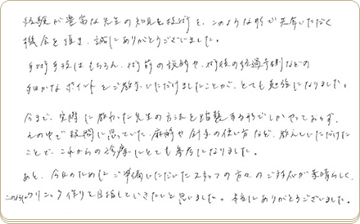 経験が豊富な先生の知見と技術を、このような形で見学いただく
機会を頂き、誠にありがとうございました。
手術手技はもちろん、術前の説明や、術後の経過予測などの
細かなポイントをご教示いただけましたことが、とても勉強になりました。
今まで、実際に教わった先生の方法を踏襲する形でしかやっておらず、
その中で疑問に思っていた麻酔や針子の使い方など、教えていただけた
ことで、これからの診療にとても参考になりました。
あと、今日のためにご準備いただいたスタッフの方々のご対応が素晴らしく、
このようなクリニック作りを目指していきたいと思いました。本当にありがとうございました。